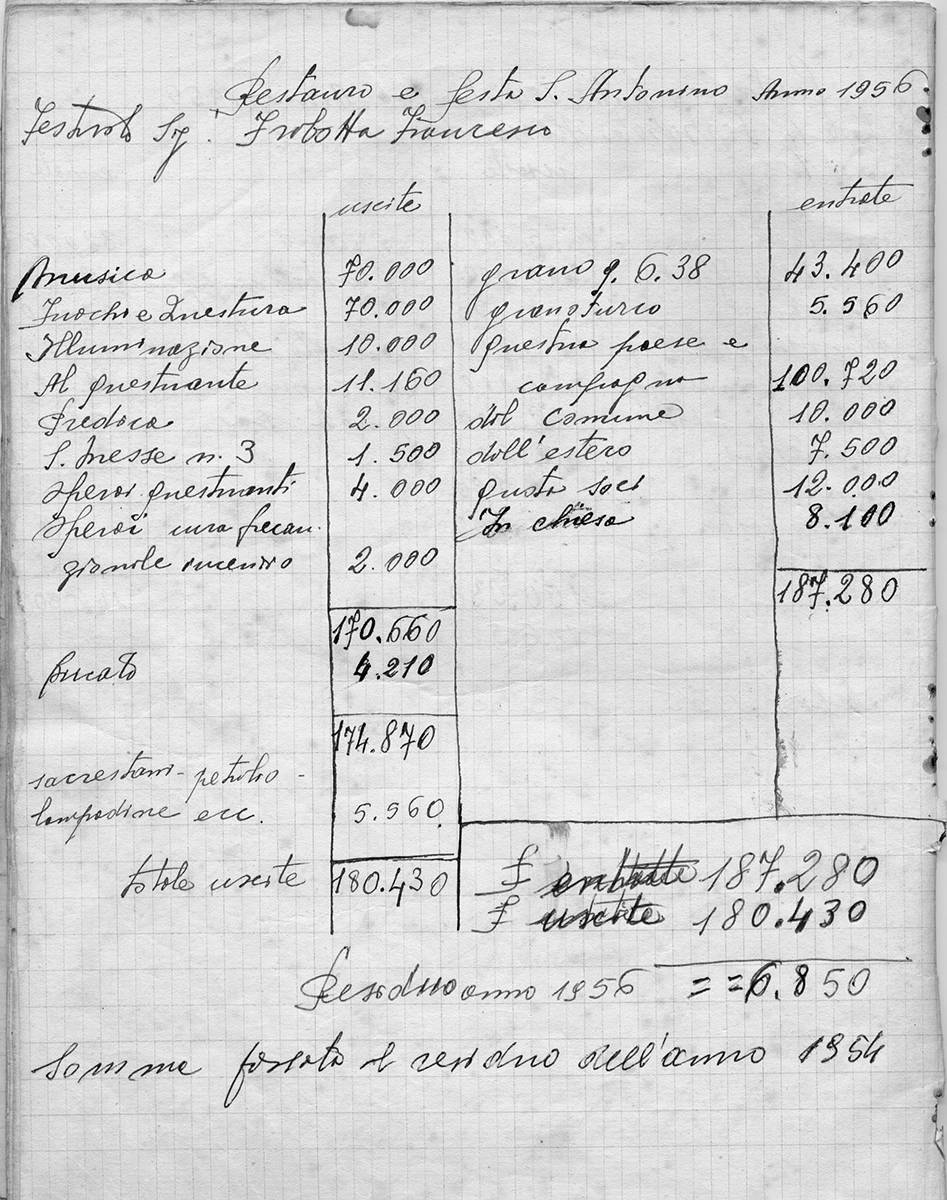 Restauro e festa S. Antonino Anno 1956.
Sig. Trobotta Francesco
uscite entrate
Musica 70.000 grano q. 6.38 43.400
Fuochi e Questura 70.000 granoturco 5.560
Illuminazione 10.000 questua paese e
Al questuante 11.160 campagna 100.720
Predica 2.000 dal comune 10.000
S. Messe n. 3 1.500 dall'estero 7.500
questuanti 4.000 quota soci 12.000
In chiesa 8.100
incenso 2.000
187.280
170.660
4.210
174.870
sacrestani - petrolio -
lampadine ecc. 5.560
totale uscite 180.430 £ entrate 187.280
£ uscite 180.430
Residuo anno 1956 = = 6.850
Somma residuo dell'anno 1954